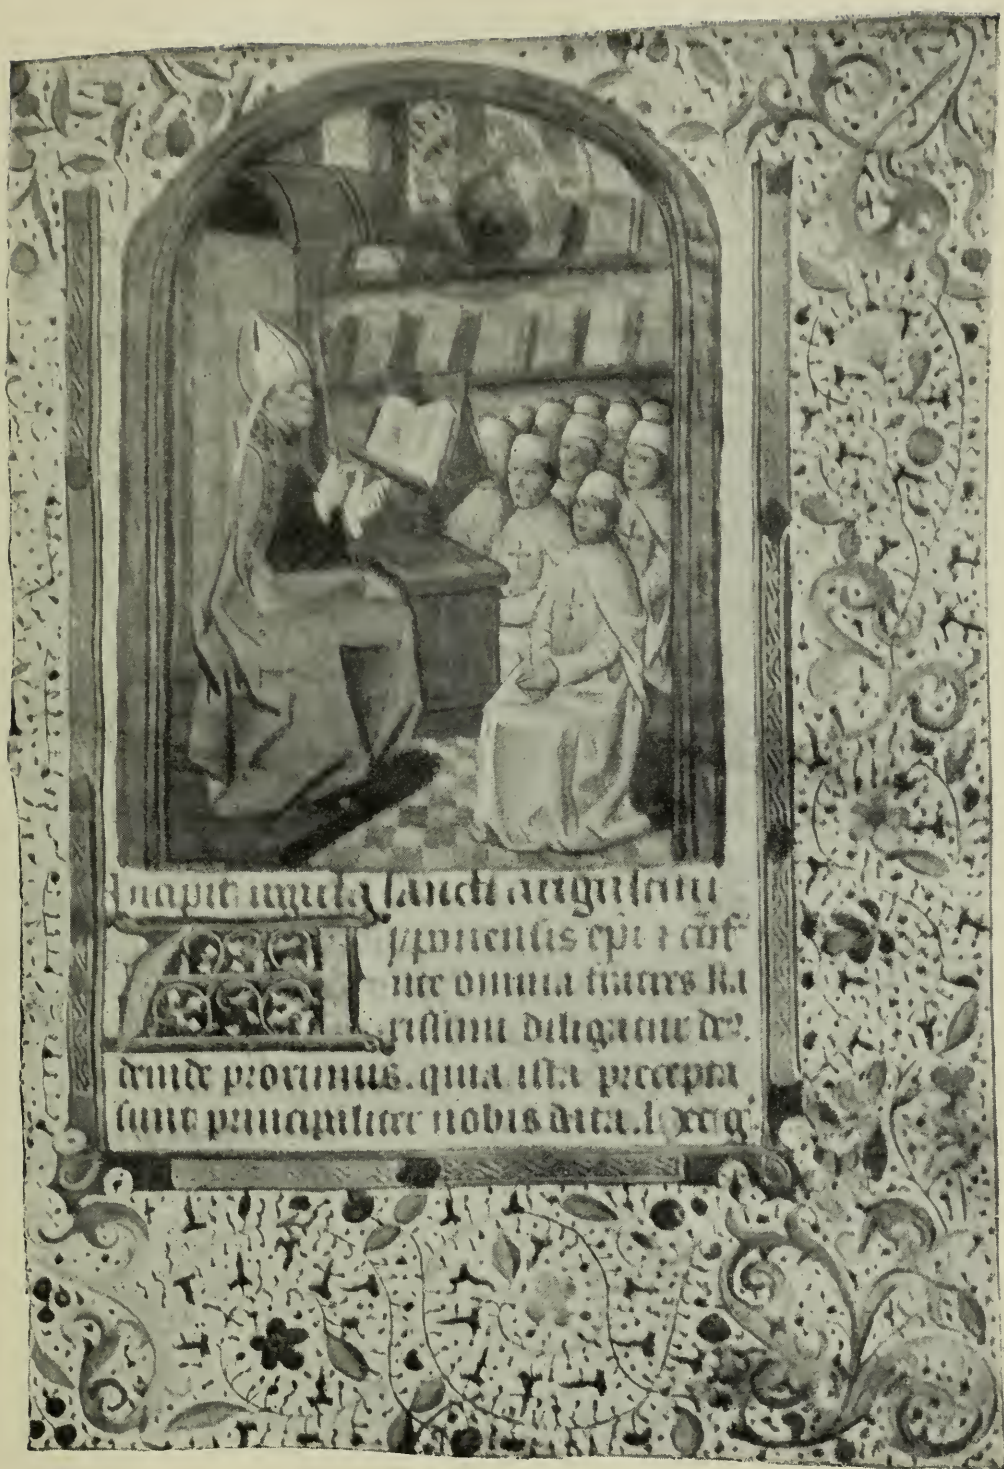 Incipit regula sancti augustini
ypponensis epi et cōf
nte omnia fratres ka
rissimi diligatur deꝰ.
deinde proximus. quia ista precepta
sunt principaliter nobis data.